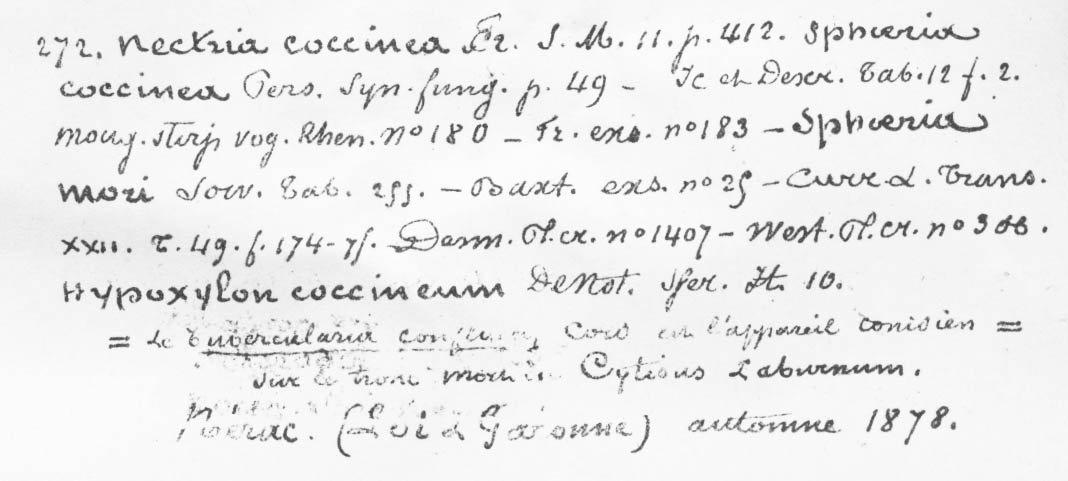 272. Nectria coccinea Fr. S. M. 11. p. 412. Sphæria
coccinea Pers. Syn. fung. p. 49 – Ic et Descr. Tab. 12 f. 2.
Moug. stirp vog. Rhen. nº 180 – Fr. exs. nº 183 – Sphæria
mori Sow. Tab. 255. – Baxt. exs. nº 25 – Curr. L. Trans.
XXII. T. 49. f. 174-75. Desm. Pl. cr. nº 1407 – West. Pl. cr. nº 366.
Hypoxylon coccineum DeNot. Sfer. It. 10.
= Le Tubercularia confluens Cord est l'appareil conidien =
sur le tronc mort de Cytisus Laburnum.
Nerac. (Lot & Garonne) automne 1878.